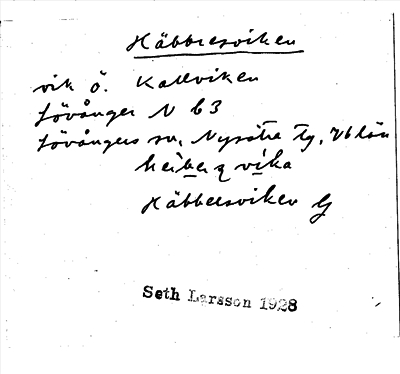 Häbbresviken
vik ö. Kallviken
Lövånger N b3
Lövångers sn, Nysätra tg, Vb län
Häbbersviken G
Seth Larsson 1928